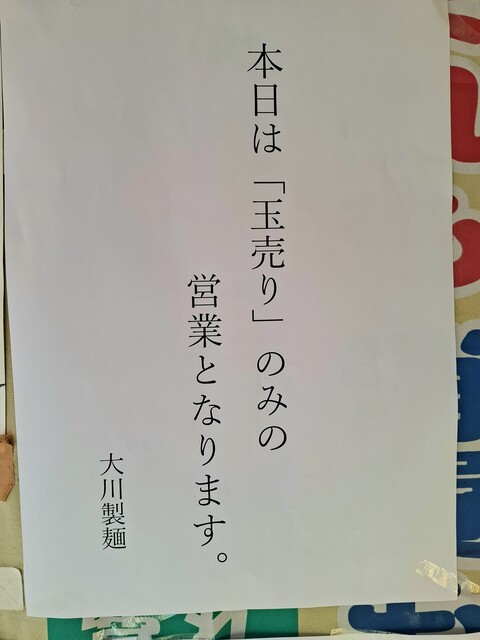 本日は「玉売り」のみの
営業となります。
大川製麺